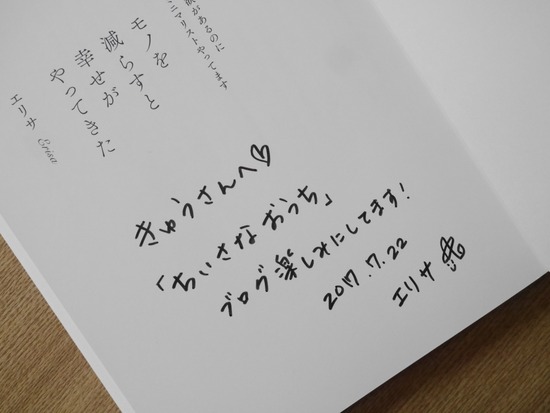 があるのに
ニマリストやってます
モノを
減らすと
幸せが
やってきた
エリサ Erisa
きゅうさんへ♡
「ちいさなおうち」
ブログ楽しみにしてます!
2017.7.22
エリサ